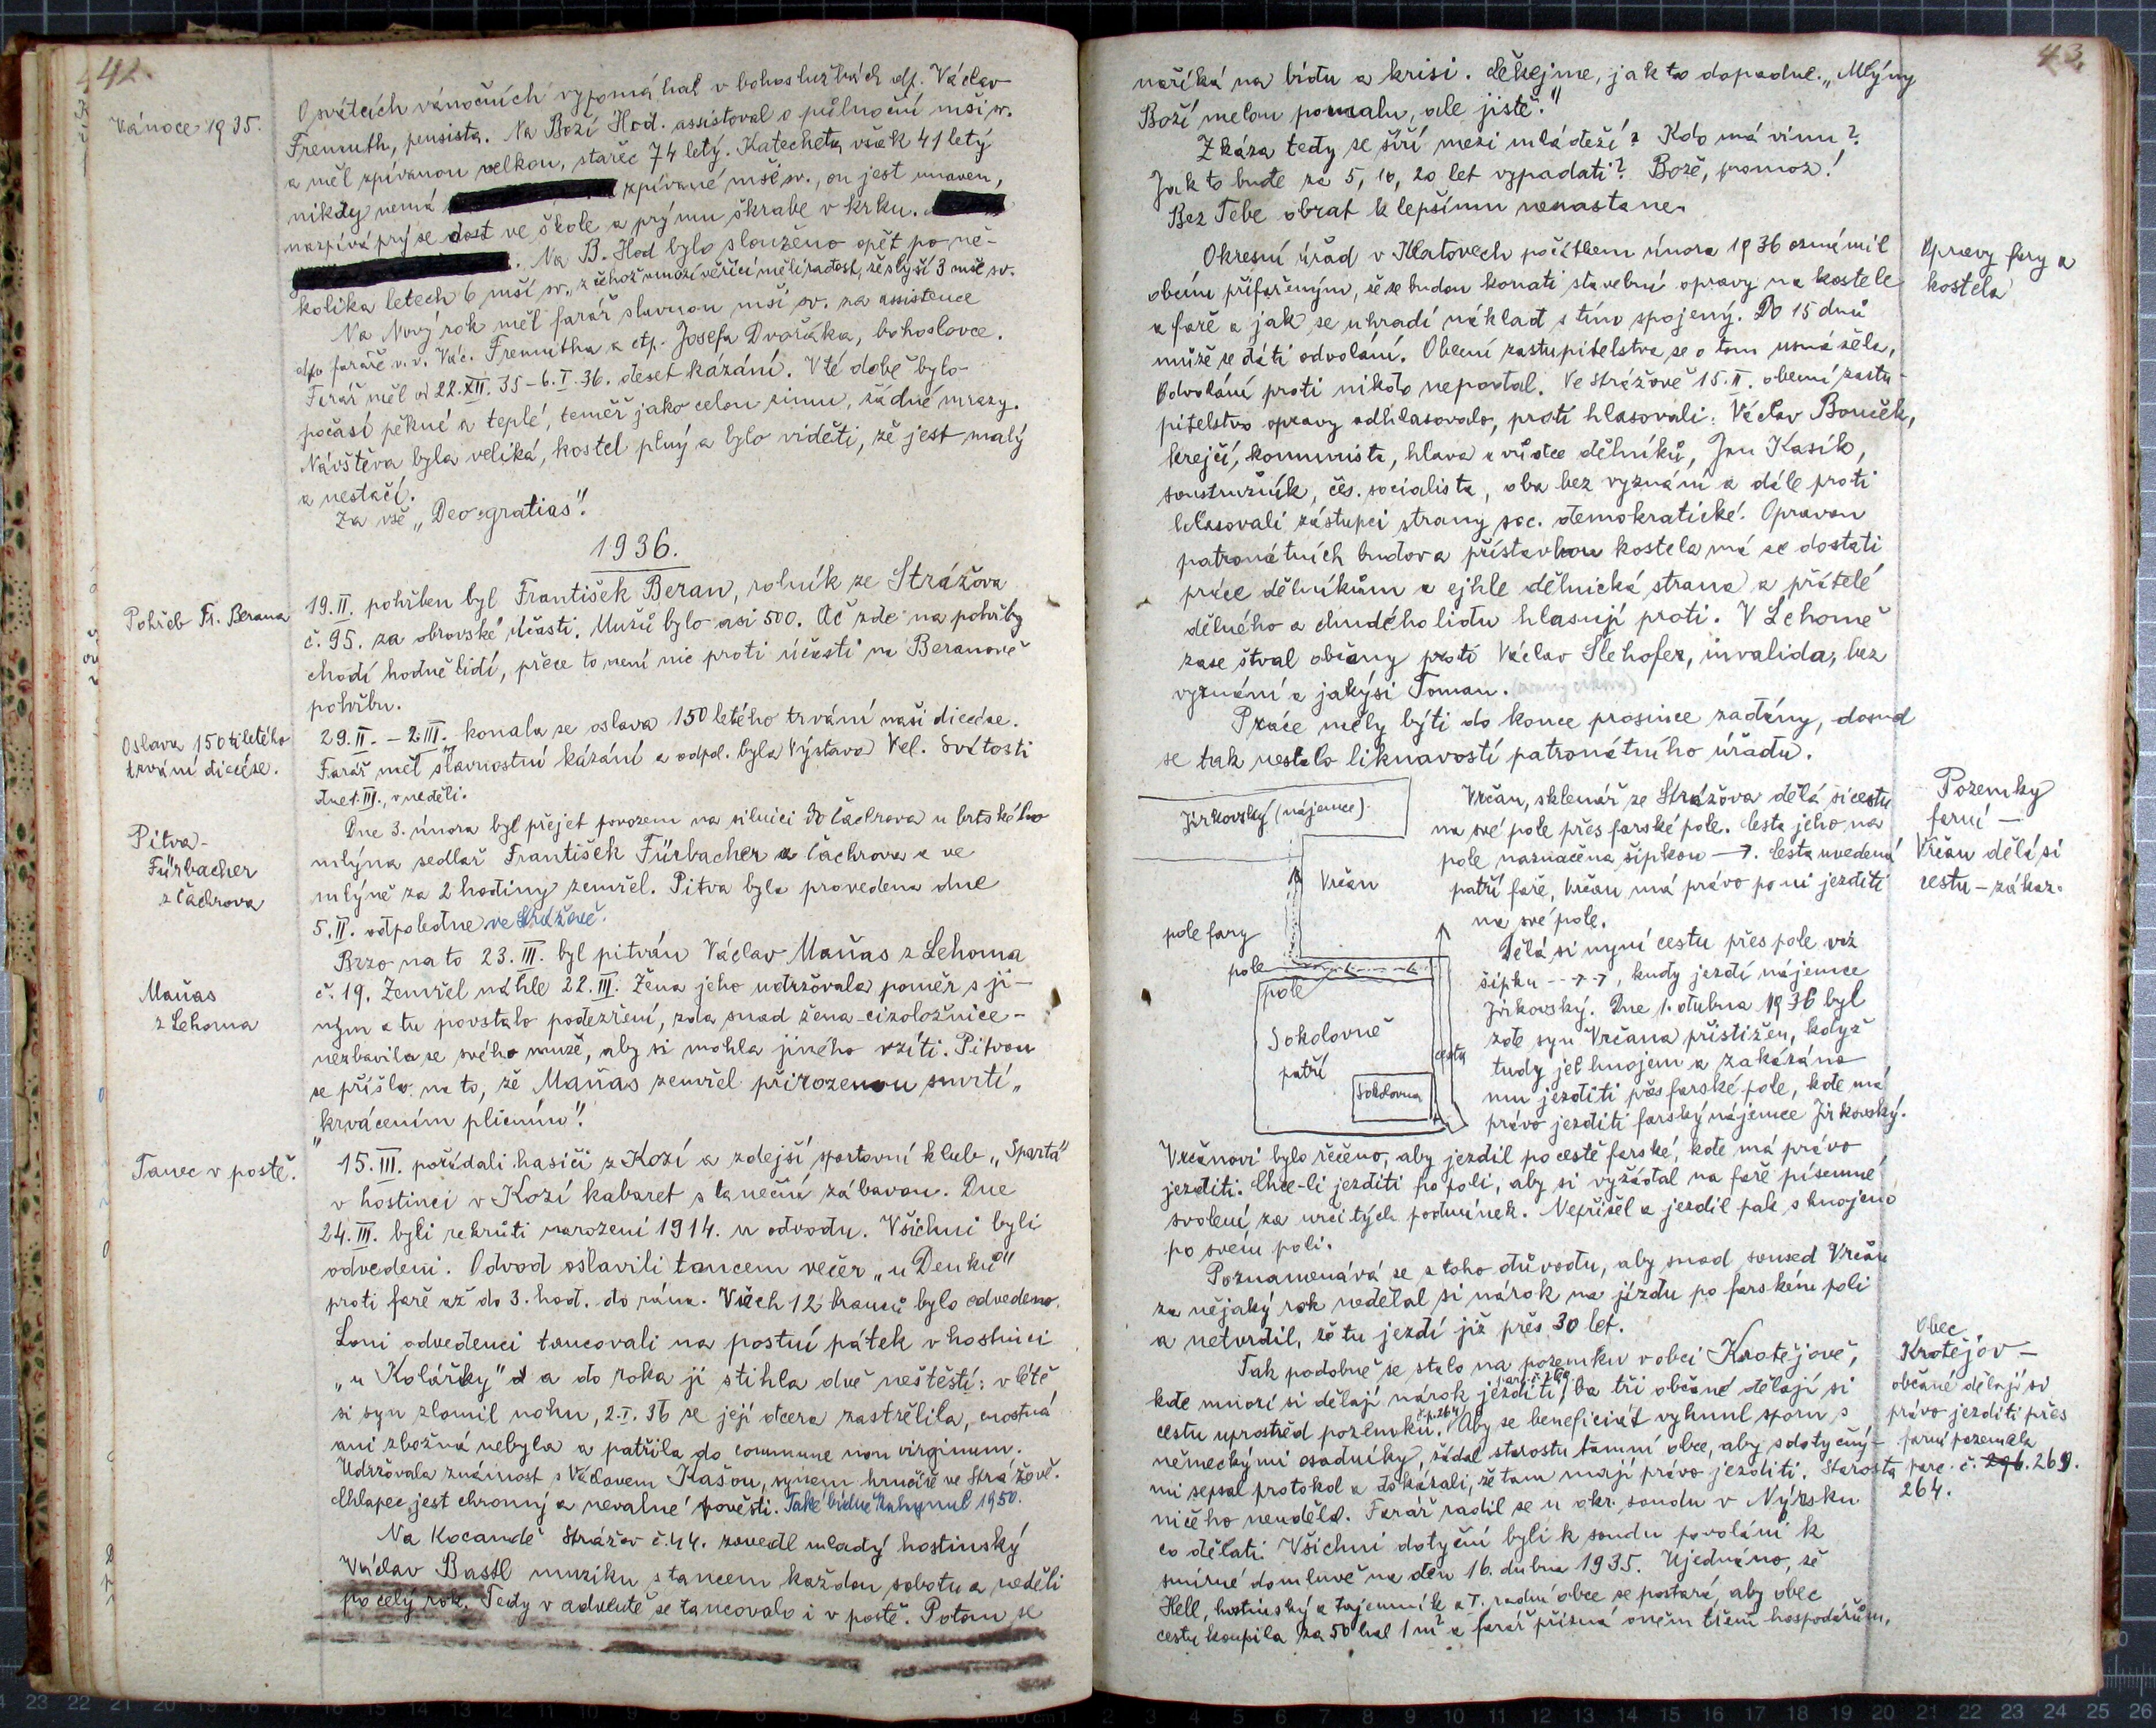 42.
Vánoce 1935.
O svátcích vánočních vypomáhal v bohoslužbách dp. Václav
Fremuth, pensista. Na Boží Hod. assistoval o půlnoční mši sv.
a měl zpívanou velkou, stařec 74 letý. Katecheta však 41 letý
nikdy nemá zpívané mše sv., on jest unaven,
nazpívá prý se dost ve škole a prý mu škrabe v krku.
. Na B. Hod bylo slouženo opět po ně-
kolika letech 6 mší sv., z čehož mnozí věřící měli radost, že slyší 3 mše sv.
Na Nový rok měl farář slavnou mši sv. za assistence
dp faráře v. v. Vác. Fremutha a ctp. Josefa Dvořáka, bohoslovce.
Farář měl od 22.XII. 35 – 6.I.36. deset kázání. V té době bylo
počasí pěkné a teplé, téměř jako celou zimu, žádné mrazy.
Návštěva byla veliká, kostel plný a bylo viděti, že jest malý
a nestačí.
Za vše „Deo gratias“!
1936.
Pohřeb Fr. Berana
19.II. pohřben byl František Beran, rolník ze Strážova
č. 95. za obrovské účasti. Mužů bylo asi 500. Ač zde na pohřby
chodí hodně lidí, přece to není nic proti účasti na Beranově
pohřbu.
Oslava 150 tiletého
trvání diecése.
29.II. – 2.III. konala se oslava 150 letého trvání naší diecése.
Farář měl slavnostní kázání a odpol. byla Výstava Vel. Svátosti
dne 1.III., v neděli.
Pitva-
Fürbacher
z Čachrova
Dne 3. února byl přejet povozem na silnici do Čachrova u brtského
mlýna sedlář František Fürbacher z Čachrova a ve
mlýně za 2 hodiny zemřel. Pitva byla provedena dne
5.II. odpoledne ve Strážově.
Maňas
z Lehoma
Brzo na to 23.III. byl pitván Václav Maňas z Lehoma
č. 19. Zemřel náhle 22.III. Žena jeho udržovala poměr s ji-
ným a tu povstalo podezření, zda snad žena-cizoložnice-
nezbavila se svého muže, aby si mohla jiného vzíti. Pitvou
se přišlo na to, že Maňas zemřel přirozenou smrtí „
„krvácením plicním“!
Tanec v postě.
15.III. pořádali hasiči z Kozí a zdejší sportovní klub „Sparta“
v hostinci v Kozí kabaret s taneční zábavou. Dne
24.III. byli rekruti narození 1914. u odvodu. Všichni byli
odvedeni. Odvod oslavili tancem večer „u Denků“
proti faře až do 3. hod. do rána. Všech 12 branců bylo odvedeno.
Loni odvedenci tancovali na postní pátek v hostinci
„u Kolářky“ a do roka ji stihla dvě neštěstí: v létě
si syn zlomil nohu, 2.I.36 se její dcera zastřelila, cnostná
ani zbožná nebyla a patřila do commune non virginum.
Udržovala známost s Václavem Kašou, synem hrnčíře ve Strážově.
Chlapec jest chromý a nevalné pověsti. Také bídně zahynul 1950.
Na Kocandě Strážov č. 44. zavedl mladý hostinský
Václav Bastl muziku s tancem každou sobotu a neděli
po celý rok. Tedy v adventě se tancovalo i v postě. Potom se
43.
naříká na bídu a krisi. Čekejme, jak to dopadne. „Mlýny
Boží melou pomalu, ale jistě.“
Zkáza tedy se šíří mezi mládeží? Kdo má vinu?
Jak to bude za 5, 10, 20 let vypadati? Bože, pomoz!
Bez Tebe obrat k lepšímu nenastane.
Opravy fary a
kostela
Okresní úřad v Klatovech počátkem února 1936 oznámil
obcím přifařeným, že se budou konati stavební opravy na kostele
a faře a jak se uhradí náklad s tím spojený. Do 15 dnů
může se dáti odvolání. Obecní zastupitelstva se o tom usnášela,
Odvolání proti nikdo nepodal. Ve Strážově 15.II. obecní zastu-
pitelstvo opravy odhlasovalo, proti hlasovali: Václav Bouček,
krejčí, komunista, hlava a vůdce dělníků, Jan Kasík,
soustružník, čes. socialista, oba bez vyznání a dále proti
hlasovali zástupci strany soc. demokratické. Opravou
patronátních budov a přístavbou kostela má se dostati
práce dělníkům a ejhle dělnická strana a přátelé
dělného a chudého lidu hlasují proti. V Lehomě
zase štval občany proti Václav Slehofer, invalida, bez
vyznání a jakýsi Toman.
Práce měly býti do konce prosince zadány, dosud
se tak nestalo liknavostí patronátního úřadu.
Pozemky
farní —
Vrčan dělá si
cestu – zákaz.
Jirkovský (nájemce)
Vrčan
pole fary
pole
pole
Sokolovně
patří
Sokolovna
cesta
Vrčan, sklenář ze Strážova dělá si cestu
na své pole přes farské pole. Cesta jeho na
pole naznačena šipkou →. Cesta uvedená
patří faře, Vrčan má právo po ní jezditi
na své pole.
Dělá si nyní cestu přes pole viz
šipku --→→, kudy jezdí nájemce
Jirkovský. Dne 1. dubna 1936 byl
zde syn Vrčana přistižen, když
tudy jel hnojem a zakázáno
mu jezditi přes farské pole, kde má
právo jezditi farský nájemce Jirkovský.
Vrčanovi bylo řečeno, aby jezdil po cestě farské, kde má právo
jezditi. Chce-li jezditi po poli, aby si vyžádal na faře písemné
svolení za určitých podmínek. Nepřišel a jezdil pak s hnojem
po svém poli.
Poznamenává se z toho důvodu, aby snad soused Vrčan
za nějaký rok nedělal si nárok na jízdu po farském poli
a netvrdil, že tu jezdí již přes 30 let.
Obec
Krotějov —
občané dělají si
právo jezditi přes
farní pozemek
parc. č. 296. 269.
264.
Tak podobně se stalo na pozemku v obci Krotějově,
kde mnozí si dělají nárok jezditi, ba tři občané dělají si
cestu uprostřed pozemku. č.p.264 Aby se beneficiát vyhnul sporu s
německými osadníky, žádal starostu tamní obce, aby s dotyčný-
mi sepsal protokol a dokázali, že tam mají právo jezditi. Starosta
ničeho neudělal. Farář radil se u okr. soudu v Nýrsku
co dělati. Všichni dotyční byli k soudu povoláni k
smírné domluvě na den 16. dubna 1935. Ujednáno, že
Hell, hostinský a tajemník a I. radní obce se postará, aby obec
cestu koupila za 50 hal 1 m² a farář přizná oněm třem hospodářům,